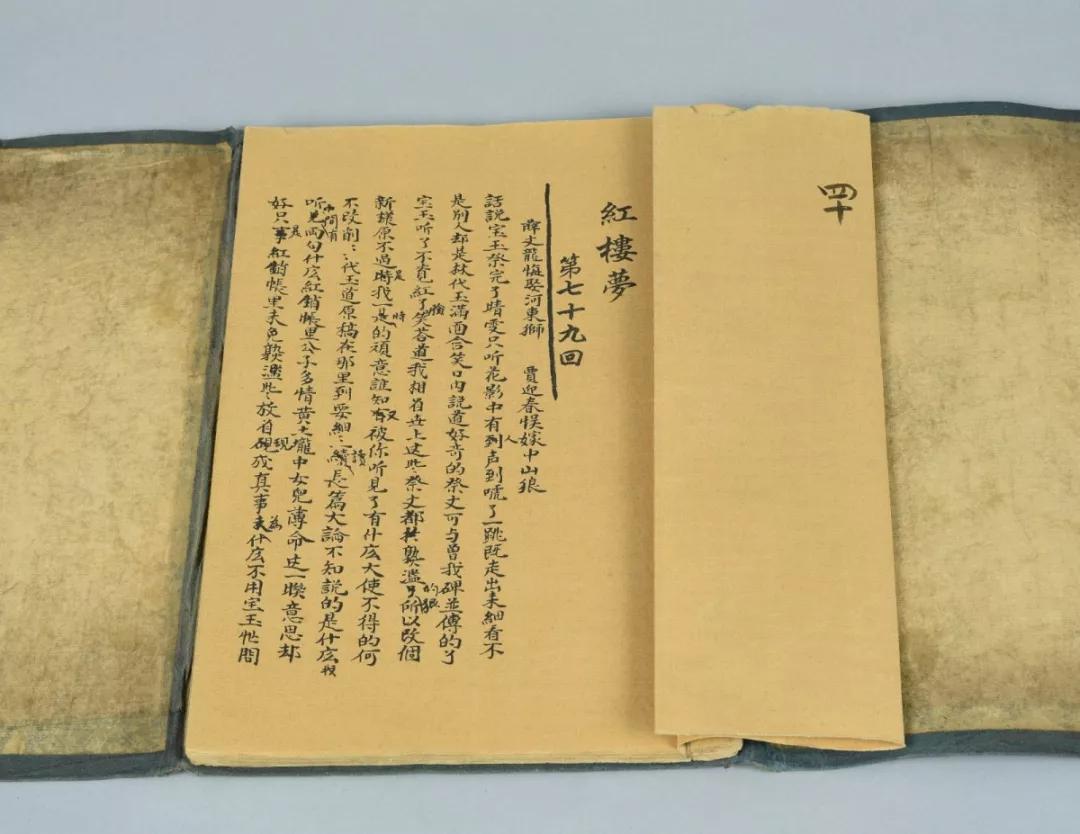 四十
紅樓夢
第七十九回
薛文龍悔娶河東獅 賈迎春悞嫁中山狼
話說宝玉祭完了晴雯只听花影中有人声到唬了一跳既走出来細看不
是別人却是林代玉滿面含笑口内說道好奇的祭文可与曾娥碑並傳的了
宝玉听了不覺紅了臉笑荅道我想着世上这些祭文都熟濫的狠所以改個
新樣原不過是我一時的頑意誰知又被你听見了有什庅大使不得的何
不改削〻〻代玉道原稿在那里到要細〻讀長篇大論不知說的是什庅
只听見中間有兩句什庅紅綃帳里公子多情黄土壠中女兒薄命这一聯意思却
好只是紅綃帳里未免熟濫些放着現成真事為什庅不用宝玉忙問